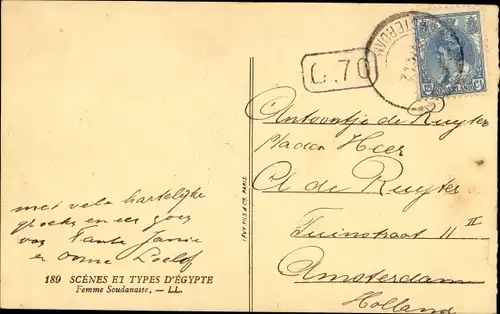 met vele hartelijke
groeten en een
van Tante Jansie
en oome Roelof
189 SCÈNES ET TYPES D'ÉGYPTE
Femme Soudanaise. — LL.
LEVY FILS & Cie, PARIS
G.70
AMSTERDAM
NEDERLAND
Antoontje de Ruyter
p/a den Heer
A de Ruyter
Tuinstraat 11 II
Amsterdam
Holland